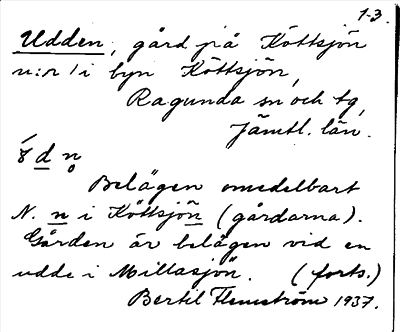 1-3.
Udden, gård på Köttsjön
n:r 1 i byn Köttsjön,
Ragunda sn och tg,
Jämtl. län.
d n
Belägen omedelbart
N. n i Köttsjön (gårdarna).
Gården är belägen vid en
udde i Millasjön. (forts.)
Bertil Flemström 1937.